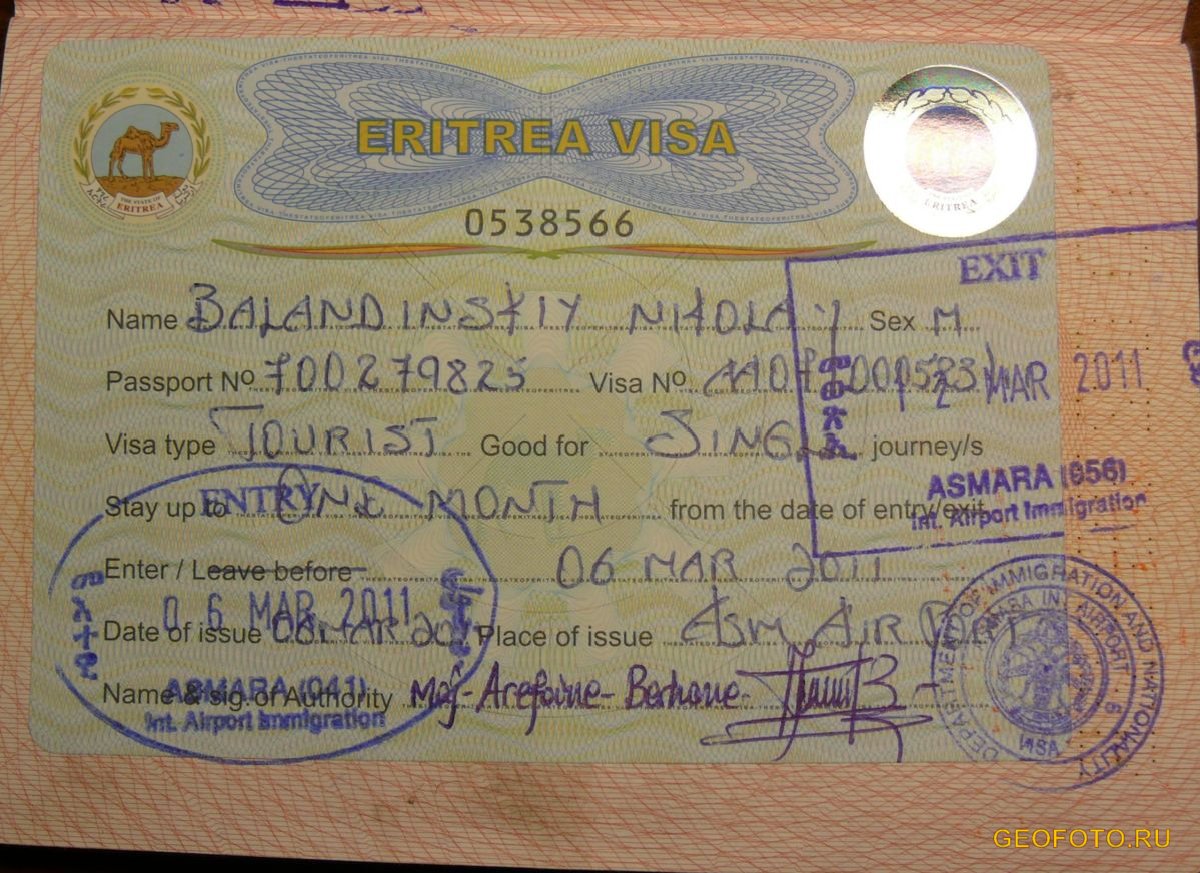 ERITREA VISA
THE STATE OF
ERITREA
ERITREA
0538566
EXIT
Name BALANDINSKIY NIKOLAY Sex M
Passport Nº 700279825 Visa Nº
12 MAR 2011
Visa type TOURIST Good for SINGLE journey/s
ASMARA (056)
Int. Airport Immigration
ENTRY
Stay up to ONE MONTH from the date of entry/exit
Enter / Leave before 06 MAR 2011
06 MAR 2011
Date of issue 06 MAR 2011 Place of issue ASM AIR PORT
Name & sig. of Authority Maj-Arefaine-Berhane-
ASMARA (041)
Int. Airport Immigration
DEPARTMENT OF IMMIGRATION AND NATIONALITY
ASMARA INT. AIRPORT 6
VISA
GEOFOTO.RU